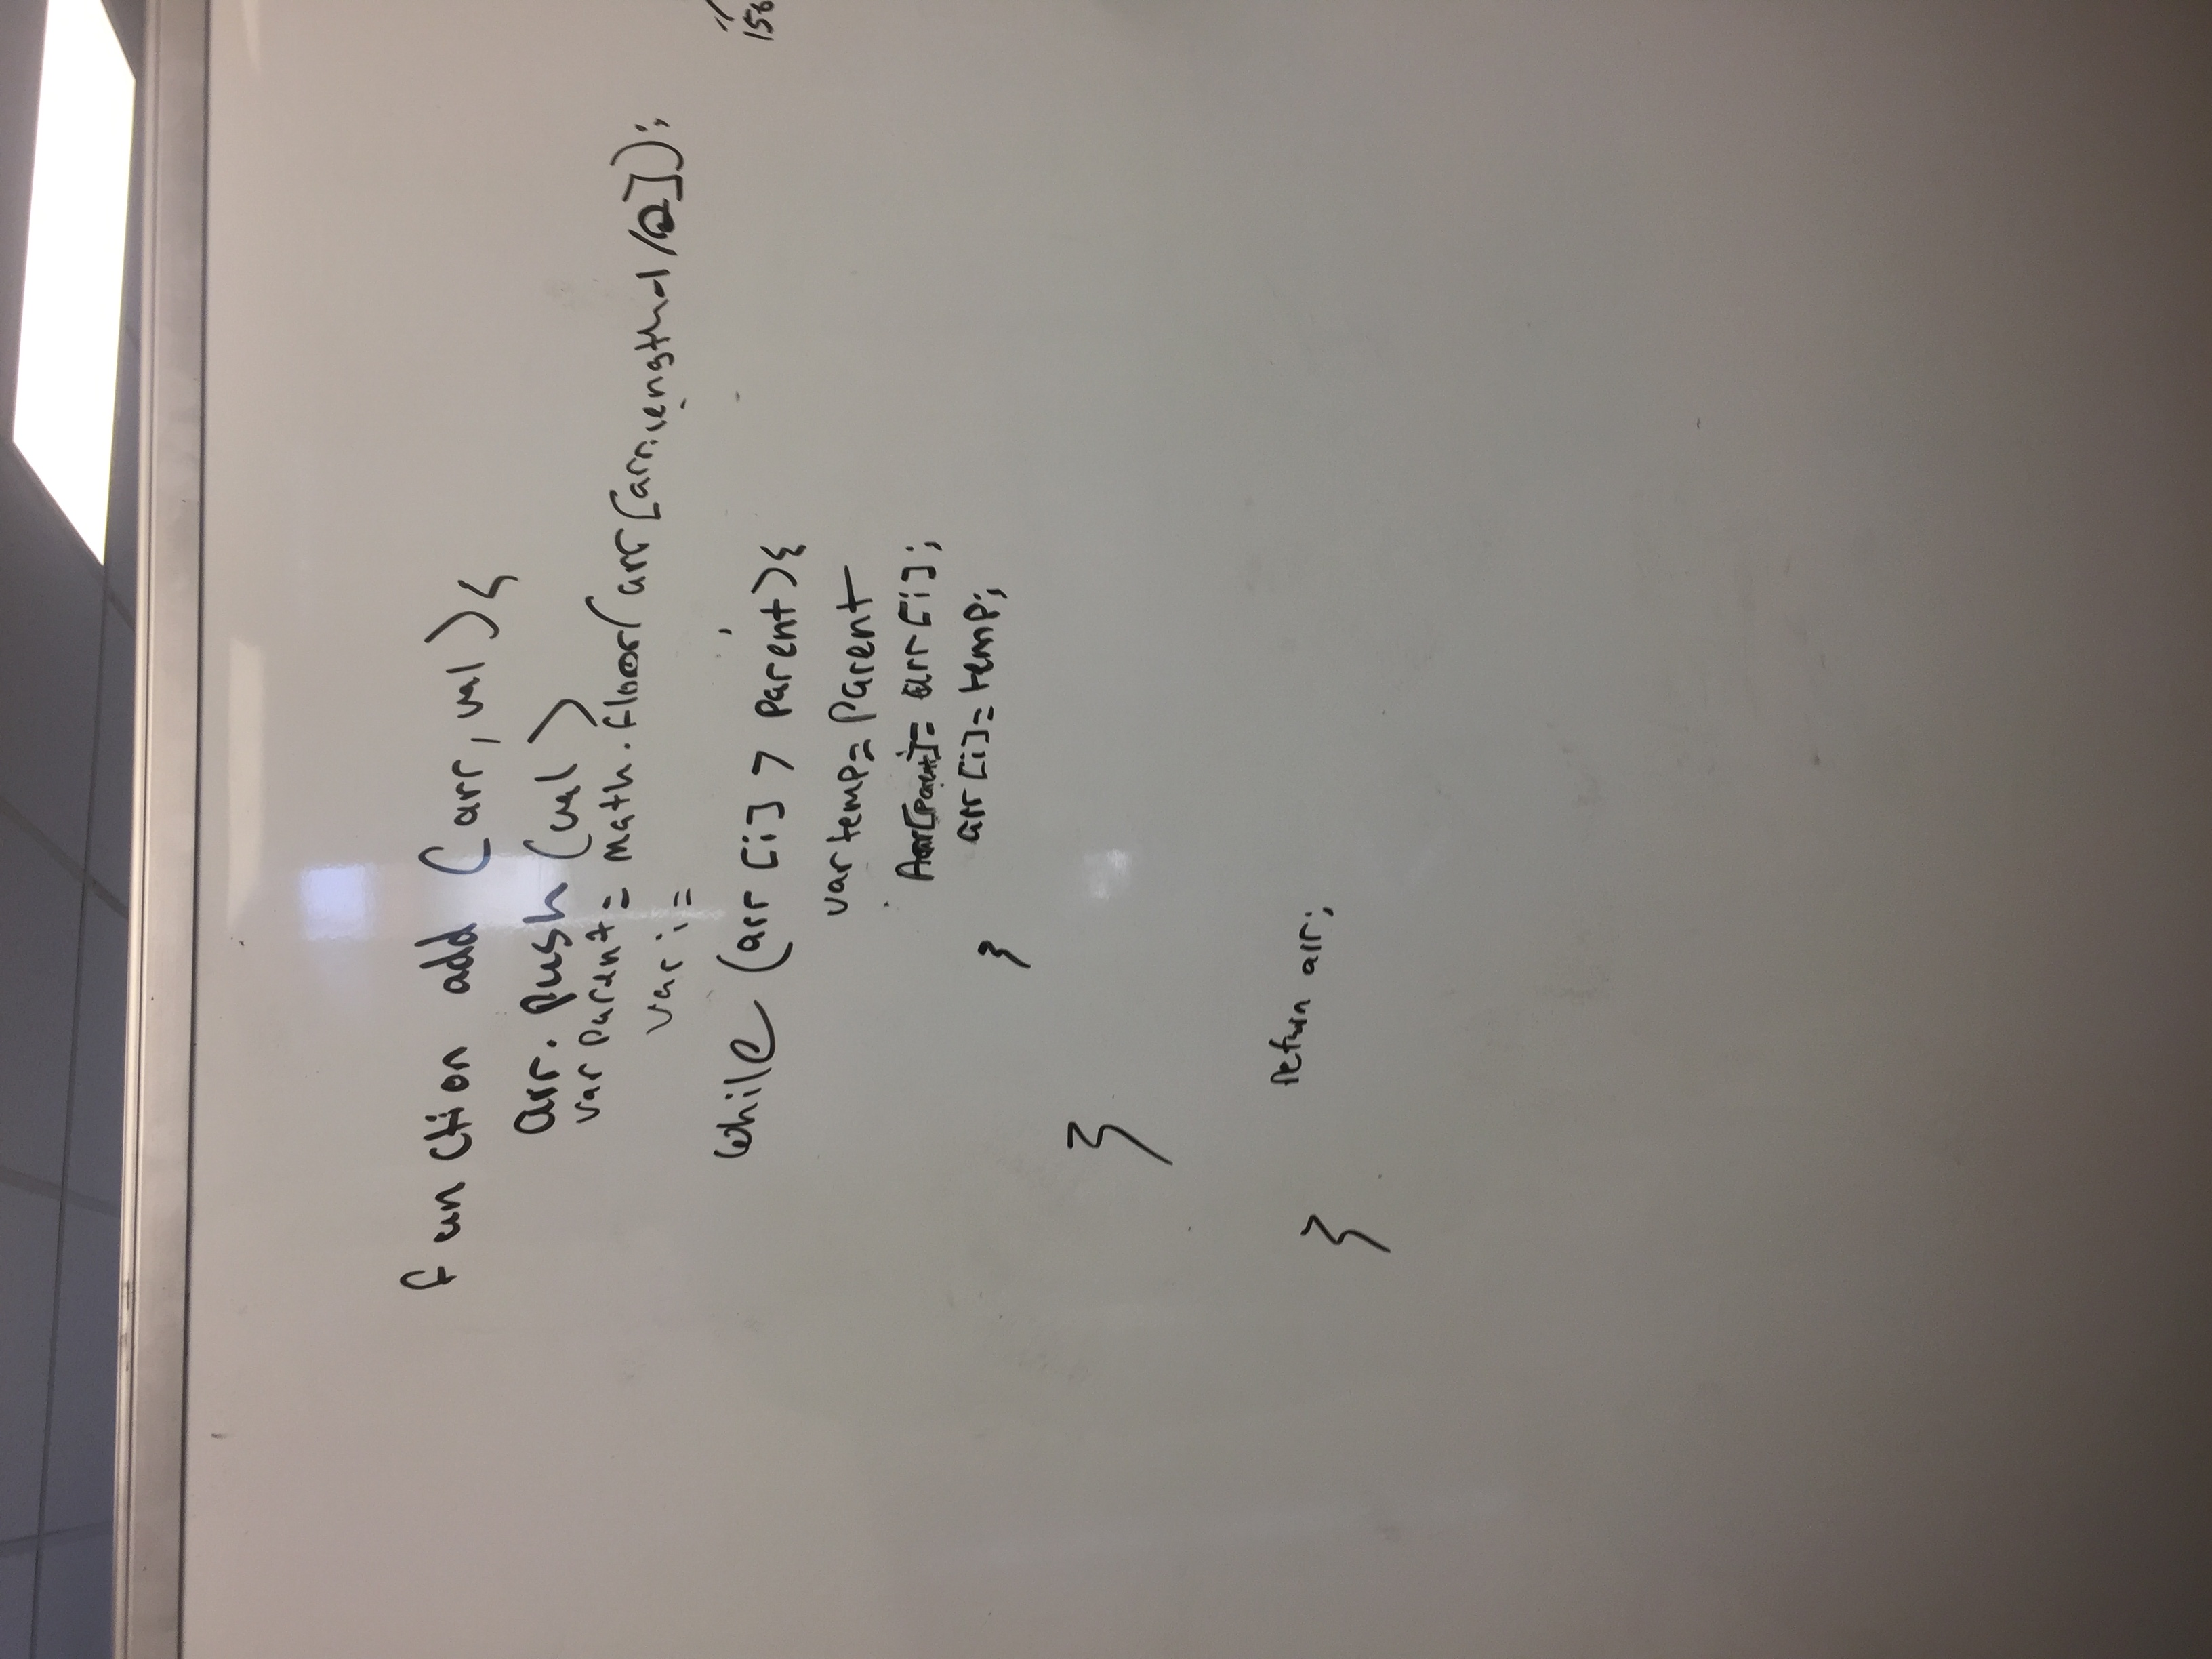 function add (arr, val){
arr.push(val)
var parent = Math.floor(arr[arr.length-1/2]);
var i =
while (arr[i] > parent){
var temp = Parent
Arr[parent] = arr[i];
arr[i] = temp;
}
}
return arr;
}